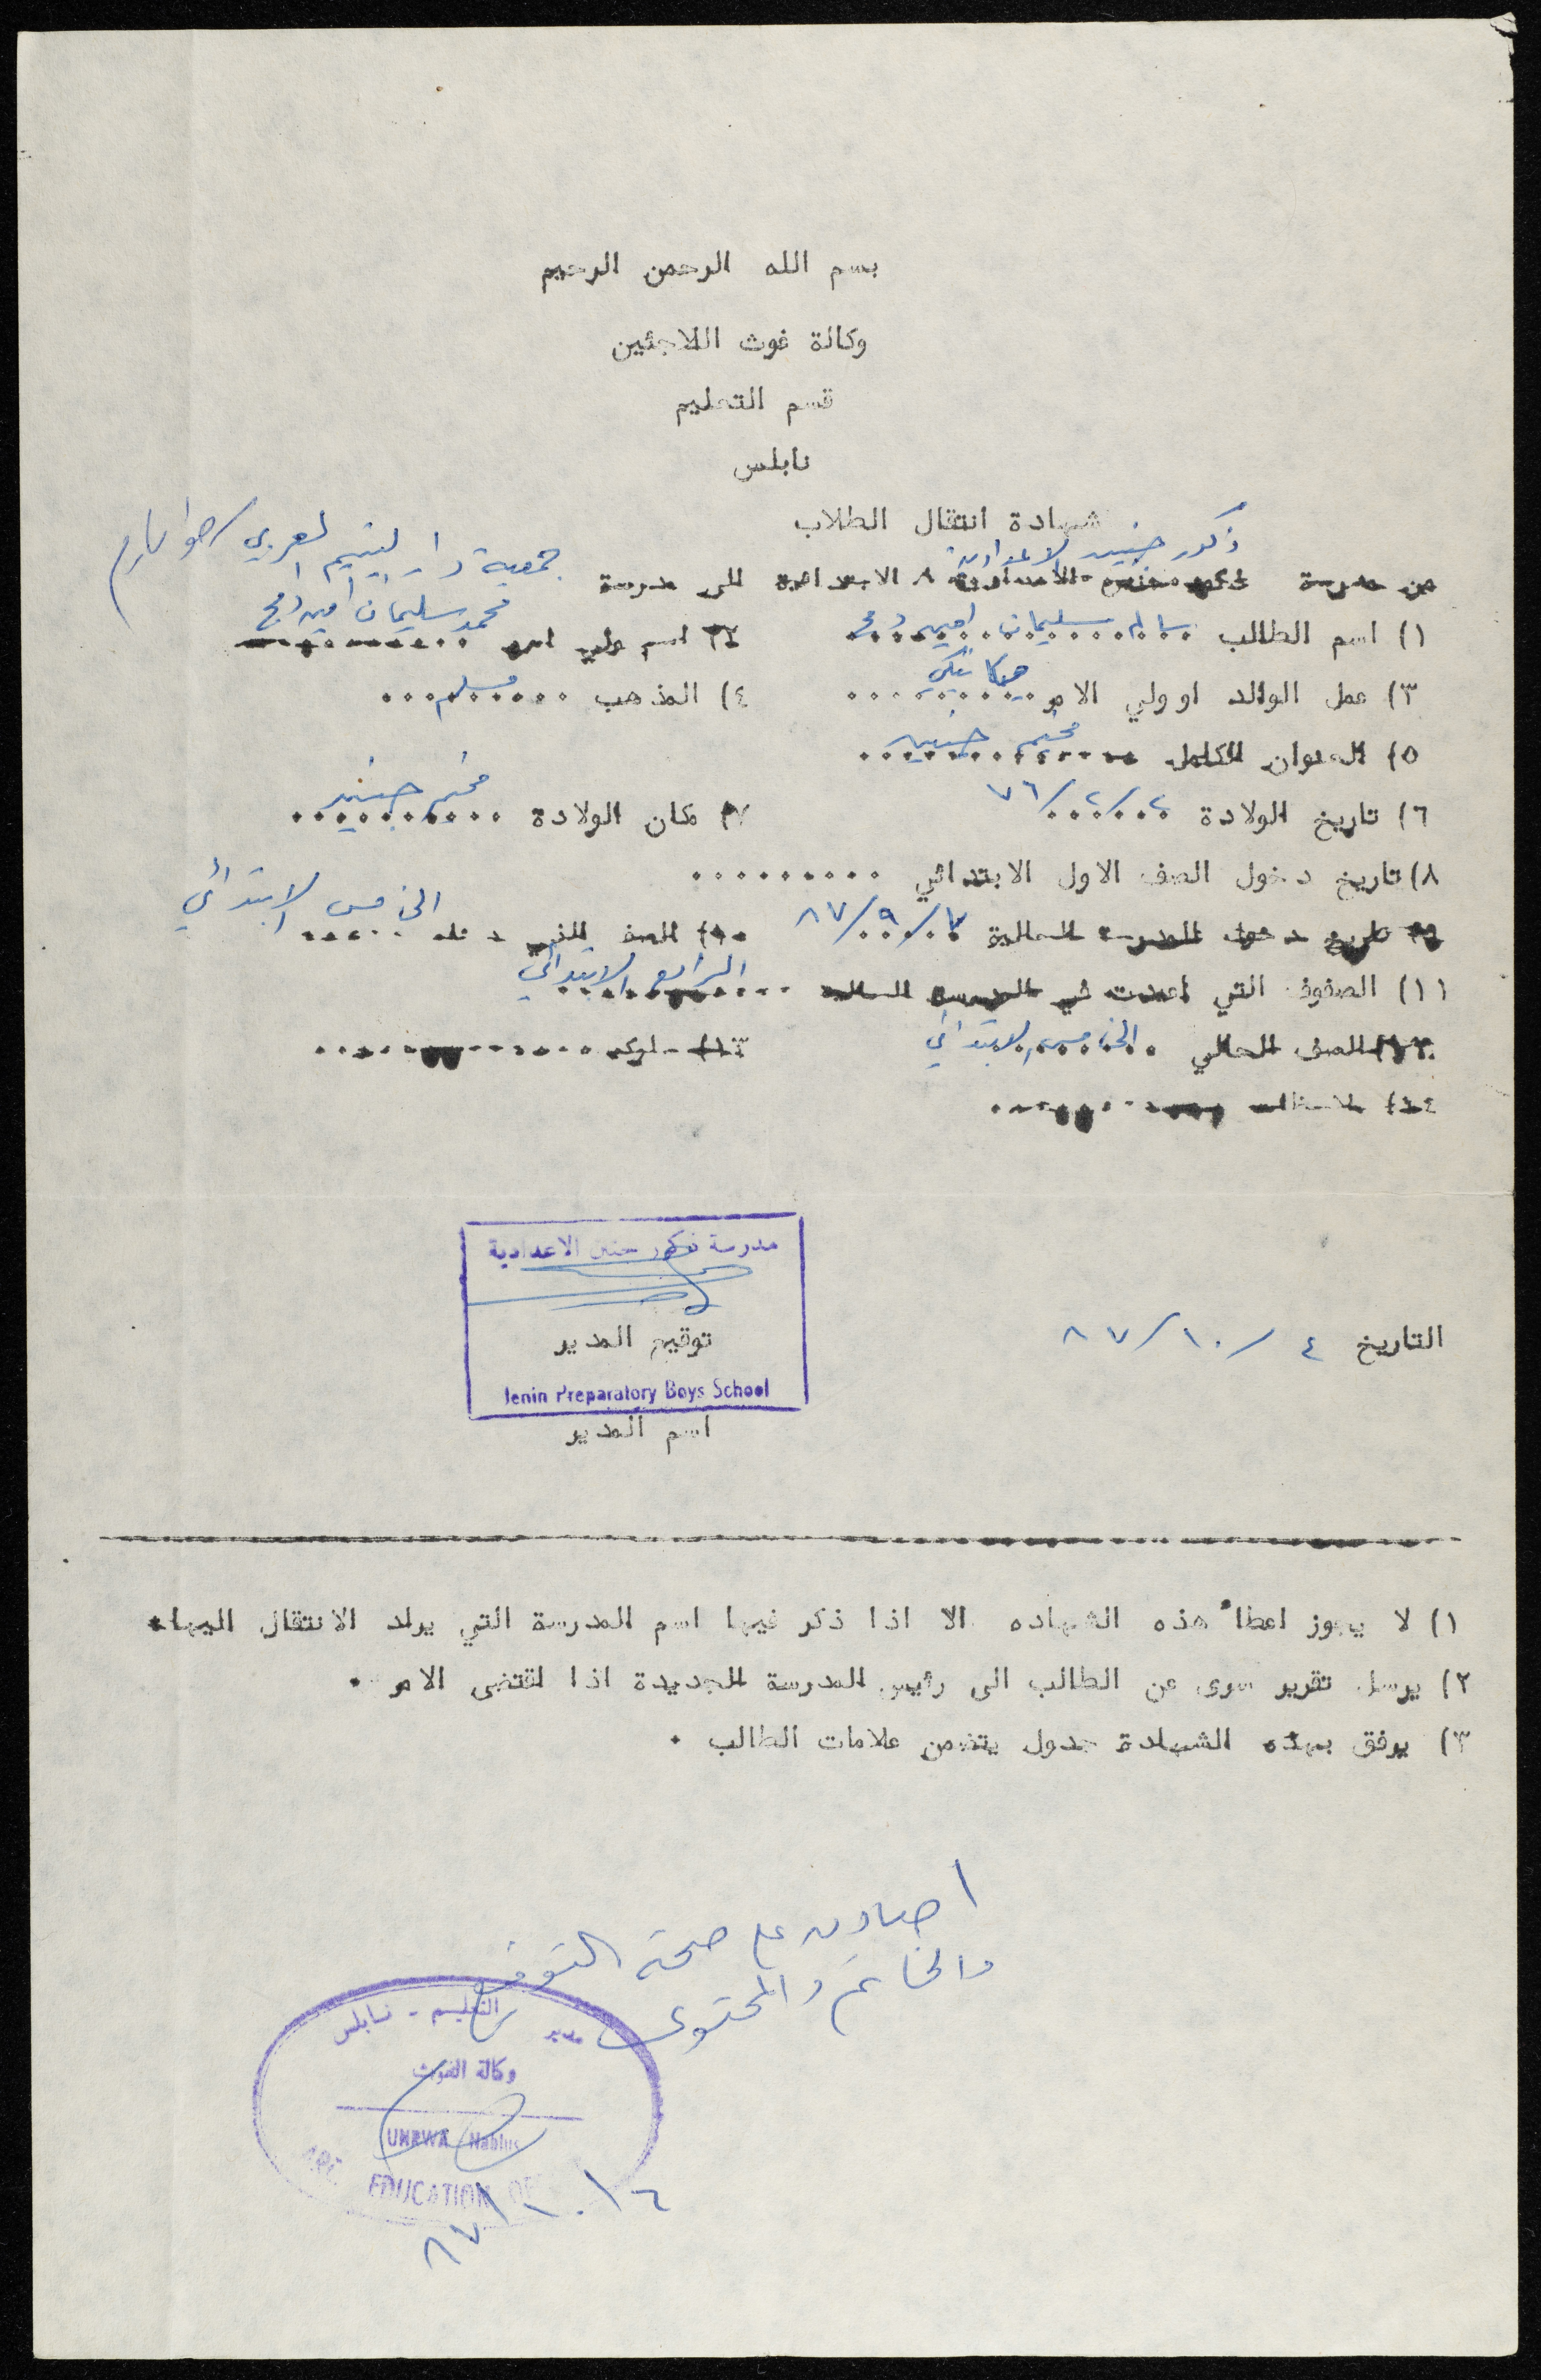 بسم الله الرحمن الرحيم
وكالة غوث اللاجئين
قسم التعليم
نابلس
شهادة انتقال الطلاب
ذكور جنين الاعدادية
جمعية دار اليتيم العربي / طولكرم
من مدرسة الابتدائية الى مدرسة
١) اسم الطالب سليمان امين ٢) اسم ولي امره محمد سليمان امين
٣) عمل الوالد او ولي الامر ميكانيكي ٤) المذهب مسلم
٥) العنوان الكامل مخيم جنين
٦) تاريخ الولادة ٧٦/٢/٢ ٧) مكان الولادة مخيم جنين
٨) تاريخ دخول الصف الاول الابتدائي
٩) تاريخ دخول المدرسة الحالية ٨٧/٩/٧ ١٠) الصف الذي دخله الخامس الابتدائي
١١) الصفوف التي اعيدت في المدرسة الحالية الرابع الابتدائي
١٢) الصف الحالي الخامس الابتدائي ١٣) سلوكه
١٤) ملاحظات
مدرسة ذكور جنين الاعدادية
توقيع المدير
Jenin Preparatory Boys School
اسم المدير
التاريخ ٤/١٠/٨٧
١) لا يجوز اعطاء هذه الشهاده الا اذا ذكر فيها اسم المدرسة التي يراد الانتقال اليها.
٢) يرسل تقرير سرى عن الطالب الى رئيس المدرسة الجديدة اذا اقتضى الامر .
٣) يرفق بهذه الشهادة جدول يتضمن علامات الطالب .
اصادق على صحة التوقيع
والخاتم والمحتوى
مدير التعليم - نابلس
وكالة الغوث
UNRWA Nablus
EDUCATION
٤/١٠/٨٧